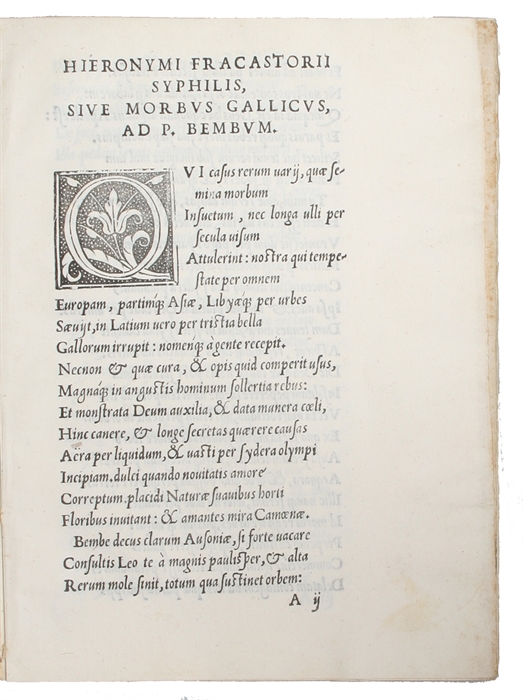 HIERONYMI FRACASTORII
SYPHILIS,
SIVE MORBVS GALLICVS,
AD P. BEMBVM.
QVI casus rerum uarij, quæ se-
mina morbum
Insuetum, nec longa ulli per
secula uisum
Attulerint: nostra qui tempe-
state per omnem
Europam, partimq; Asiæ, Libyæq; per urbes
Sæuijt, in Latium uero per tristia bella
Gallorum irrupit: nomenq; à gente recepit.
Necnon & quæ cura, & opis quid comperit usus,
Magnaq; in angustis hominum sollertia rebus:
Et monstrata Deum auxilia, & data munera cœli,
Hinc canere, & longe secretas quærere causas
Aëra per liquidum, & uasti per sydera olympi
Incipiam. dulci quando nouitatis amore
Correptum, placidi Naturæ suauibus horti
Floribus inuitant: & amantes mira Camœnæ.
Bembe decus clarum Ausoniæ, si forte uacare
Consultis Leo te à magnis paulisper, & alta
Rerum mole sinit, totum qua sustinet orbem:
A ij